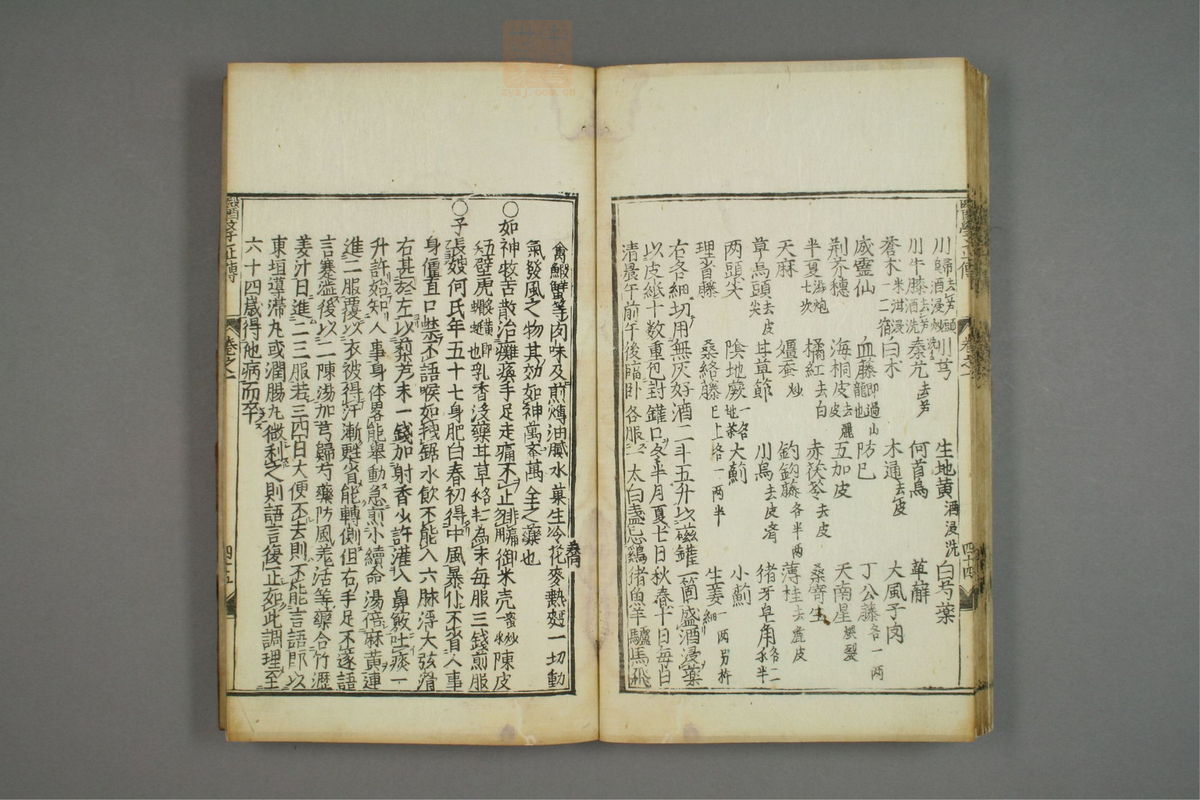 川歸酒浸去芦頭 川芎 生地黄酒浸洗 白芍藥
川牛膝去芦酒洗 秦艽去芦 何首烏 萆薢
蒼朮米泔浸一二宿 白朮 木通去皮 大風子肉
威靈仙 血藤即過山龍也 防已 丁公藤各一两
荆芥穗 海桐皮去麄皮 五加皮 天南星煨裂
半夏湯炮七次 橘紅去白 赤茯苓去皮 桑寄生
天麻 殭蚕炒 釣鉤藤各半两 薄桂去麄皮
草烏頭去皮尖 甘草節 川烏去皮 猪牙皂角各二半
两頭尖 陰地蕨一名地茶 大薊 小薊
理省藤 桑絡藤已上各一两半 生姜一两另杵細
右各細切用無灰好酒二斗五升以磁罐一箇盛酒浸藥
以皮紙十数重包封罐口冬半月夏七日秋春十日每日
清晨午前午後臨卧各服一大白盞忌鷄猪魚羊驢馬飛
醫學正傳 卷之一 四十四
禽鰕蟹等肉味及煎煿油膩水菓生冷花麥熱麪一切動
氣發風之物其効如神萬舉萬全之藥也
○如神救苦散治癱瘓手足走痛不止 御米壳蜜炒 陳皮
五 壁虎即蝘蜓也 乳香没藥甘草 為末每服三錢煎服
○子張嫂何氏年五十七身肥白春初得中風暴仆不省人事
身僵直口禁不語喉如拽鋸水飲不能入六脉浮大弦滑
右甚於左以藜芦末一錢加射香少許灌入鼻竅吐痰一
升許始知人事身体畧能舉動急煎小續命湯倍麻黄連
進二服覆以衣被得汗漸甦省能轉側但右手足不遂語
言蹇澁後以二陳湯加芎歸芍藥防風羌活等藥合竹瀝
姜汁日進二三服若三四日大便不去則不能言語即以
東垣導滞丸或潤腸丸微利之則語言復正如此調理至
六十四歲得他病而卒
醫學正傳 卷之一 四十五